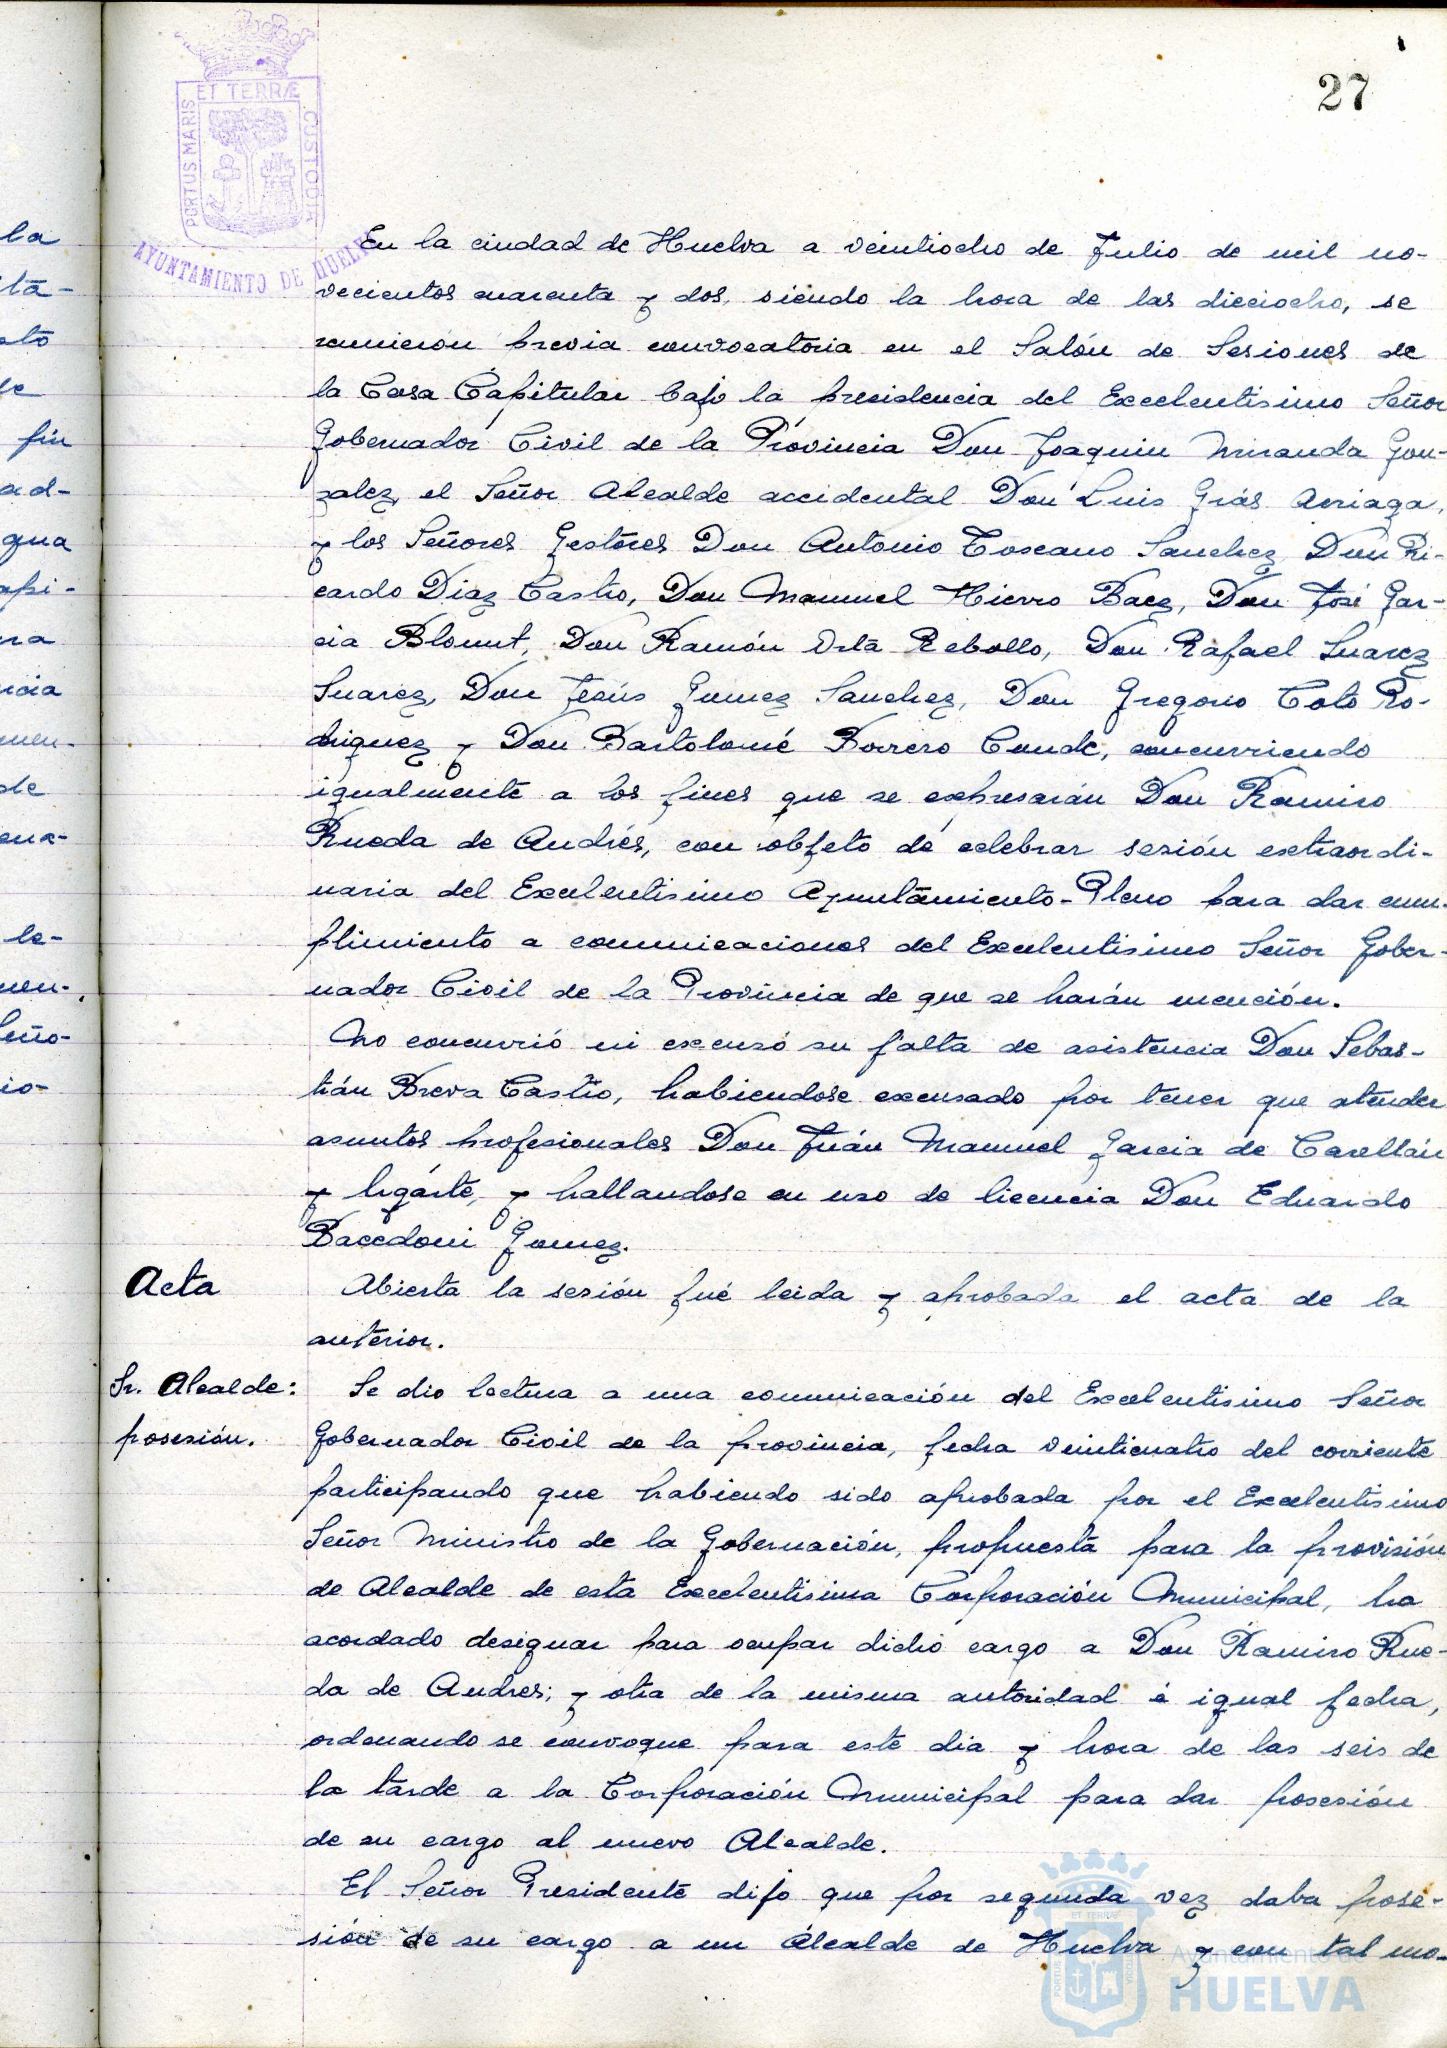 27
ET TERRÆ
PORTUS MARIS
CUSTODIA
AYUNTAMIENTO DE HUELVA
En la ciudad de Huelva a veintiocho de Julio de mil no-
vecientos cuarenta y dos, siendo la hora de las dieciocho, se
reunieron previa convocatoria en el Salón de Sesiones de
la Casa Capitular bajo la presidencia del Excelentisimo Señor
Gobernador Civil de la Provincia Don Joaquin Miranda Gon-
zalez, el Señor Alcalde accidental Don Luis Grás Arriaga,
y los Señores Gestores Don Antonio Toscano Sanchez, Don Ri-
cardo Diaz Castro, Don Manuel Hierro Baez, Don José Gar-
cia Blount, Don Ramón Orta Rebollo, Don Rafael Suarez
Suarez, Don Jesús Gomez Sanchez, Don Gregorio Coto Ro-
driguez y Don Bartolomé Borrero Conde, concurriendo
igualmente a los fines que se expresarán Don Ramiro
Rueda de Andrés, con objeto de celebrar sesión extraordi-
naria del Excelentisimo Ayuntamiento-Pleno para dar cum-
plimiento a comunicaciones del Excelentisimo Señor Gober-
nador Civil de la Provincia de que se harán mención.
No concurrió ni excusó su falta de asistencia Don Sebas-
tián Breva Castro, habiendose excusado por tener que atender
asuntos profesionales Don Juán Manuel Garcia de Casellán
y Ugarte, y hallandose en uso de licencia Don Eduardo
Bacedoni Gomez.
Acta
Abierta la sesión fué leida y aprobada el acta de la
anterior.
Sr. Alcalde:
posesión.
Se dio lectura a una comunicación del Excelentisimo Señor
Gobernador Civil de la provincia, fecha veinticuatro del corriente
participando que habiendo sido aprobada por el Excelentisimo
Señor Ministro de la Gobernación, propuesta para la provisión
de Alcalde de esta Excelentisima Corporación Municipal, ha
acordado designar para ocupar dicho cargo a Don Ramiro Rue-
da de Andres; y otra de la misma autoridad é igual fecha,
ordenando se convoque para este dia y hora de las seis de
la tarde a la Corporación Municipal para dar posesión
de su cargo al nuevo Alcalde.
El Señor Presidente dijo que por segunda vez daba pose-
sión de su cargo a un Alcalde de Huelva y con tal mo-
Ayuntamiento de
HUELVA
la
eto
de
fin
ad-
gua
api-
ra
ncia
men-
de
ena-
le-
men-
Seño-
io-